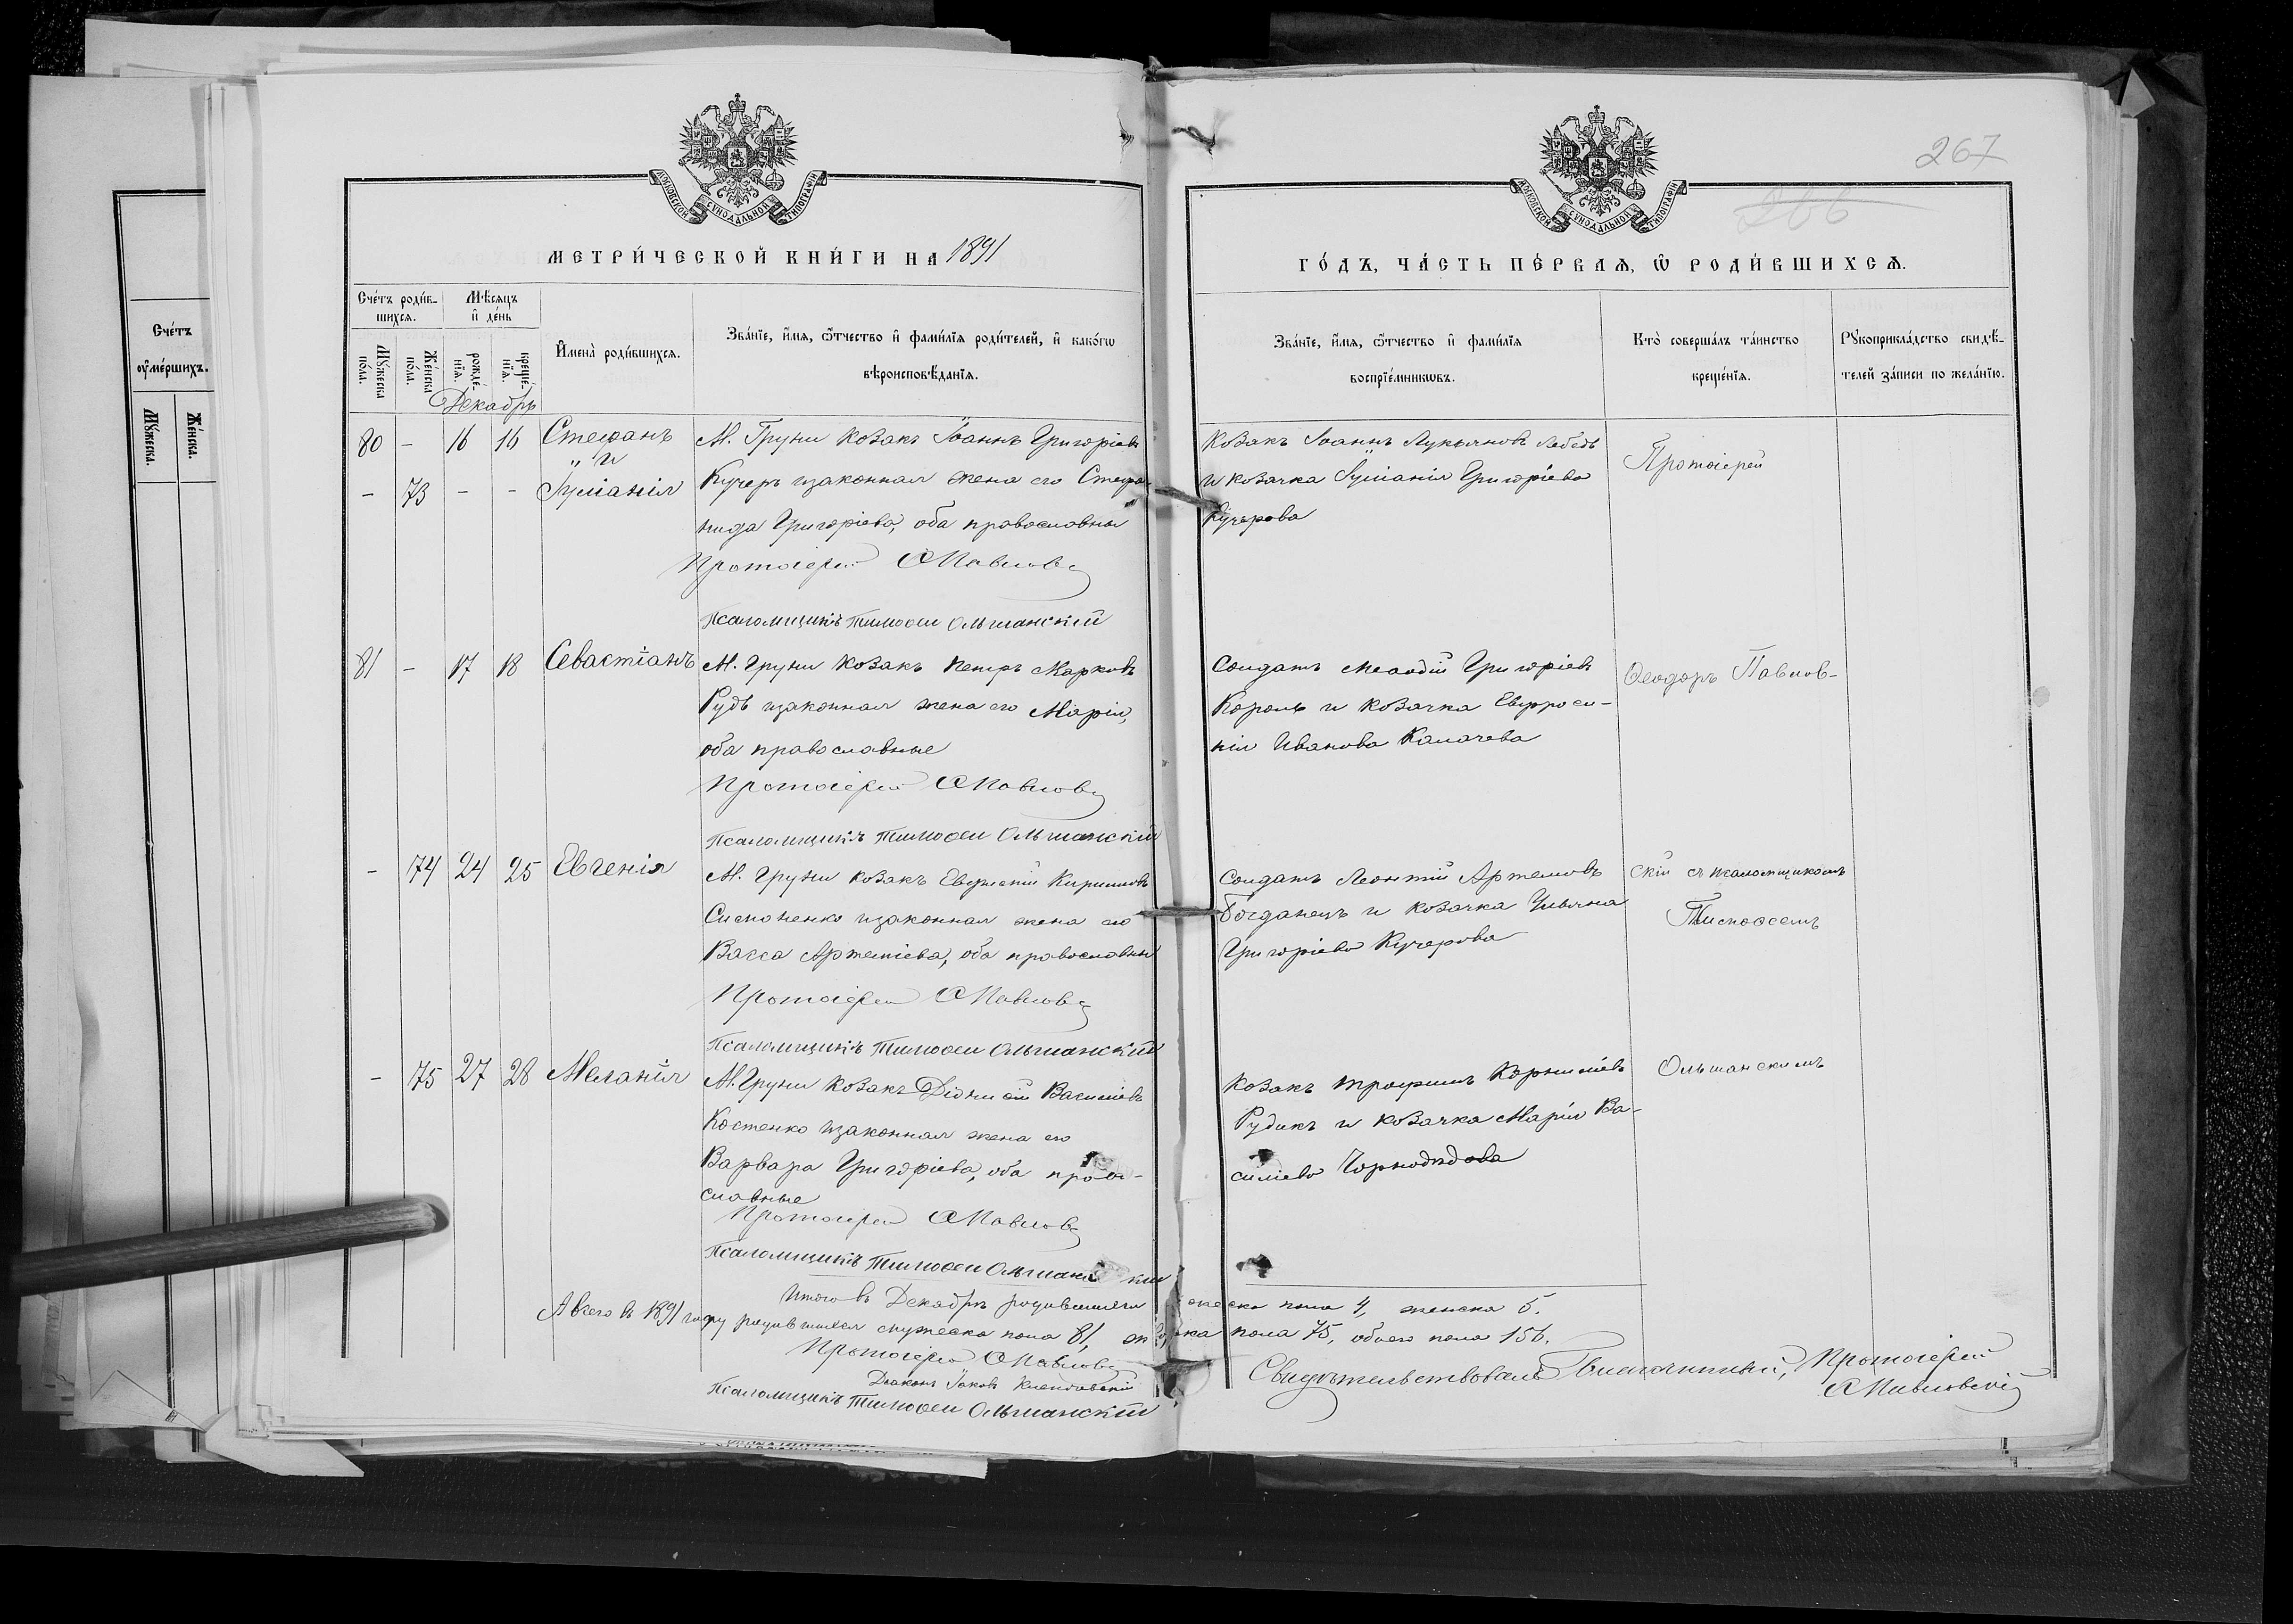 МОСКОВСКОЙ СУНОДАЛЬНОЙ ТИПОГРАФІИ
МЕТРИ́ЧЕСКОЙ КНИ́ГИ НА 1891
Сче́тъ роди́в-
шихся.
Мѣсяцъ
и҆ де́нь
Мꙋжеска
по́ла.
Же́нска
по́ла.
рожде́-
нїя.
креще́-
нїя.
И҆мена̀ роди́вшихся.
Зва́нїе, и҆́мя, ѻ҆́тчество и҆ фами́лїя роди́телей, и҆ како́гѡ
вѣроисповѣ́данїя.
Декабрь
80 - 16 16 Стефанъ
„ и
- 73 - - Іуліанія
М. Груни козакъ Іоаннъ Григоріевъ
Кучеръ изаконная жена его Стефа-
нида Григоріева, оба православны
Протоіерей Ѳ Павловс
Псаломщикъ Тимоѳеи Ольшанскій
81 - 17 18 Севастіанъ
М. Груни козакъ Петръ Марковъ
Рудь изаконная жена его Марія,
оба православные
Протоіерей Ѳ Павловс
Псаломщикъ Тимоѳеи Ольшанскій
- 74 24 25 Евгенія
М. Груни козакъ Евфимій Кириловъ
Симоненко изаконная жена его
Васса Артеміева, оба православны
Протоіерей Ѳ Павловс
Псаломщикъ Тимоѳеи Ольшанскій
- 75 27 28 Меланія
М. Груни козакъ Діонисій Василіевъ
Костенко изаконная жена его
Варвара Григоріева, оба право-
славные
Протоіерей Ѳ Павловс
Псаломщикъ Тимоѳеи Ольшанскій
Итого въ Декабрѣ родившихся
А всего въ 1891 году родившихся мужеска пола 81,
Протоіерей Ѳ Павловс
Діаконъ Іаковъ
Псаломщикъ Тимоѳеи Ольшанскій
267
266
МОСКОВСКОЙ СУНОДАЛЬНОЙ ТИПОГРАФІИ
ГО́ДЪ, ЧА́СТЬ ПЕ́РВАЯ, Ѡ҆ РОДИ́ВШИХСЯ.
Зва́нїе, и҆́мя, ѻ҆́тчество и҆ фами́лїя
воспрїе́мникѡвъ.
Кто̀ соверша́лъ та́инство
креще́нїя.
Рꙋкоприкла́дство свидѣ́-
телей за́писи по жела́нїю.
Козакъ Іоаннъ Лукьяновъ Лебедь
и козачка Іуліанія Григоріева
Кучерова
Протоіерей
Солдатъ Меѳодій Григоріевъ
Король и козачка Евфроси-
нія Иванова Калачева
Ѳеодоръ Павлов-
Солдатъ Леонтій Артемовъ
Богданецъ и козачка Ульяна
Григоріева Кучерова
скій съ псаломщикомъ
Тимоѳеемъ
Козакъ Трофимъ Корниліевъ
Рудикъ и козачка Марія Ва-
силіева Чорнодѣдова
Ольшанскимъ
жеска пола 4, женска 5.
ска пола 75, обоего пола 156.
Свидѣтельствовалъ Благочинный, Протоіерей
Ѳ Павловскій
Сче́тъ
оу҆ме́ршихъ.
Мꙋ́жеска.
Же́нска.